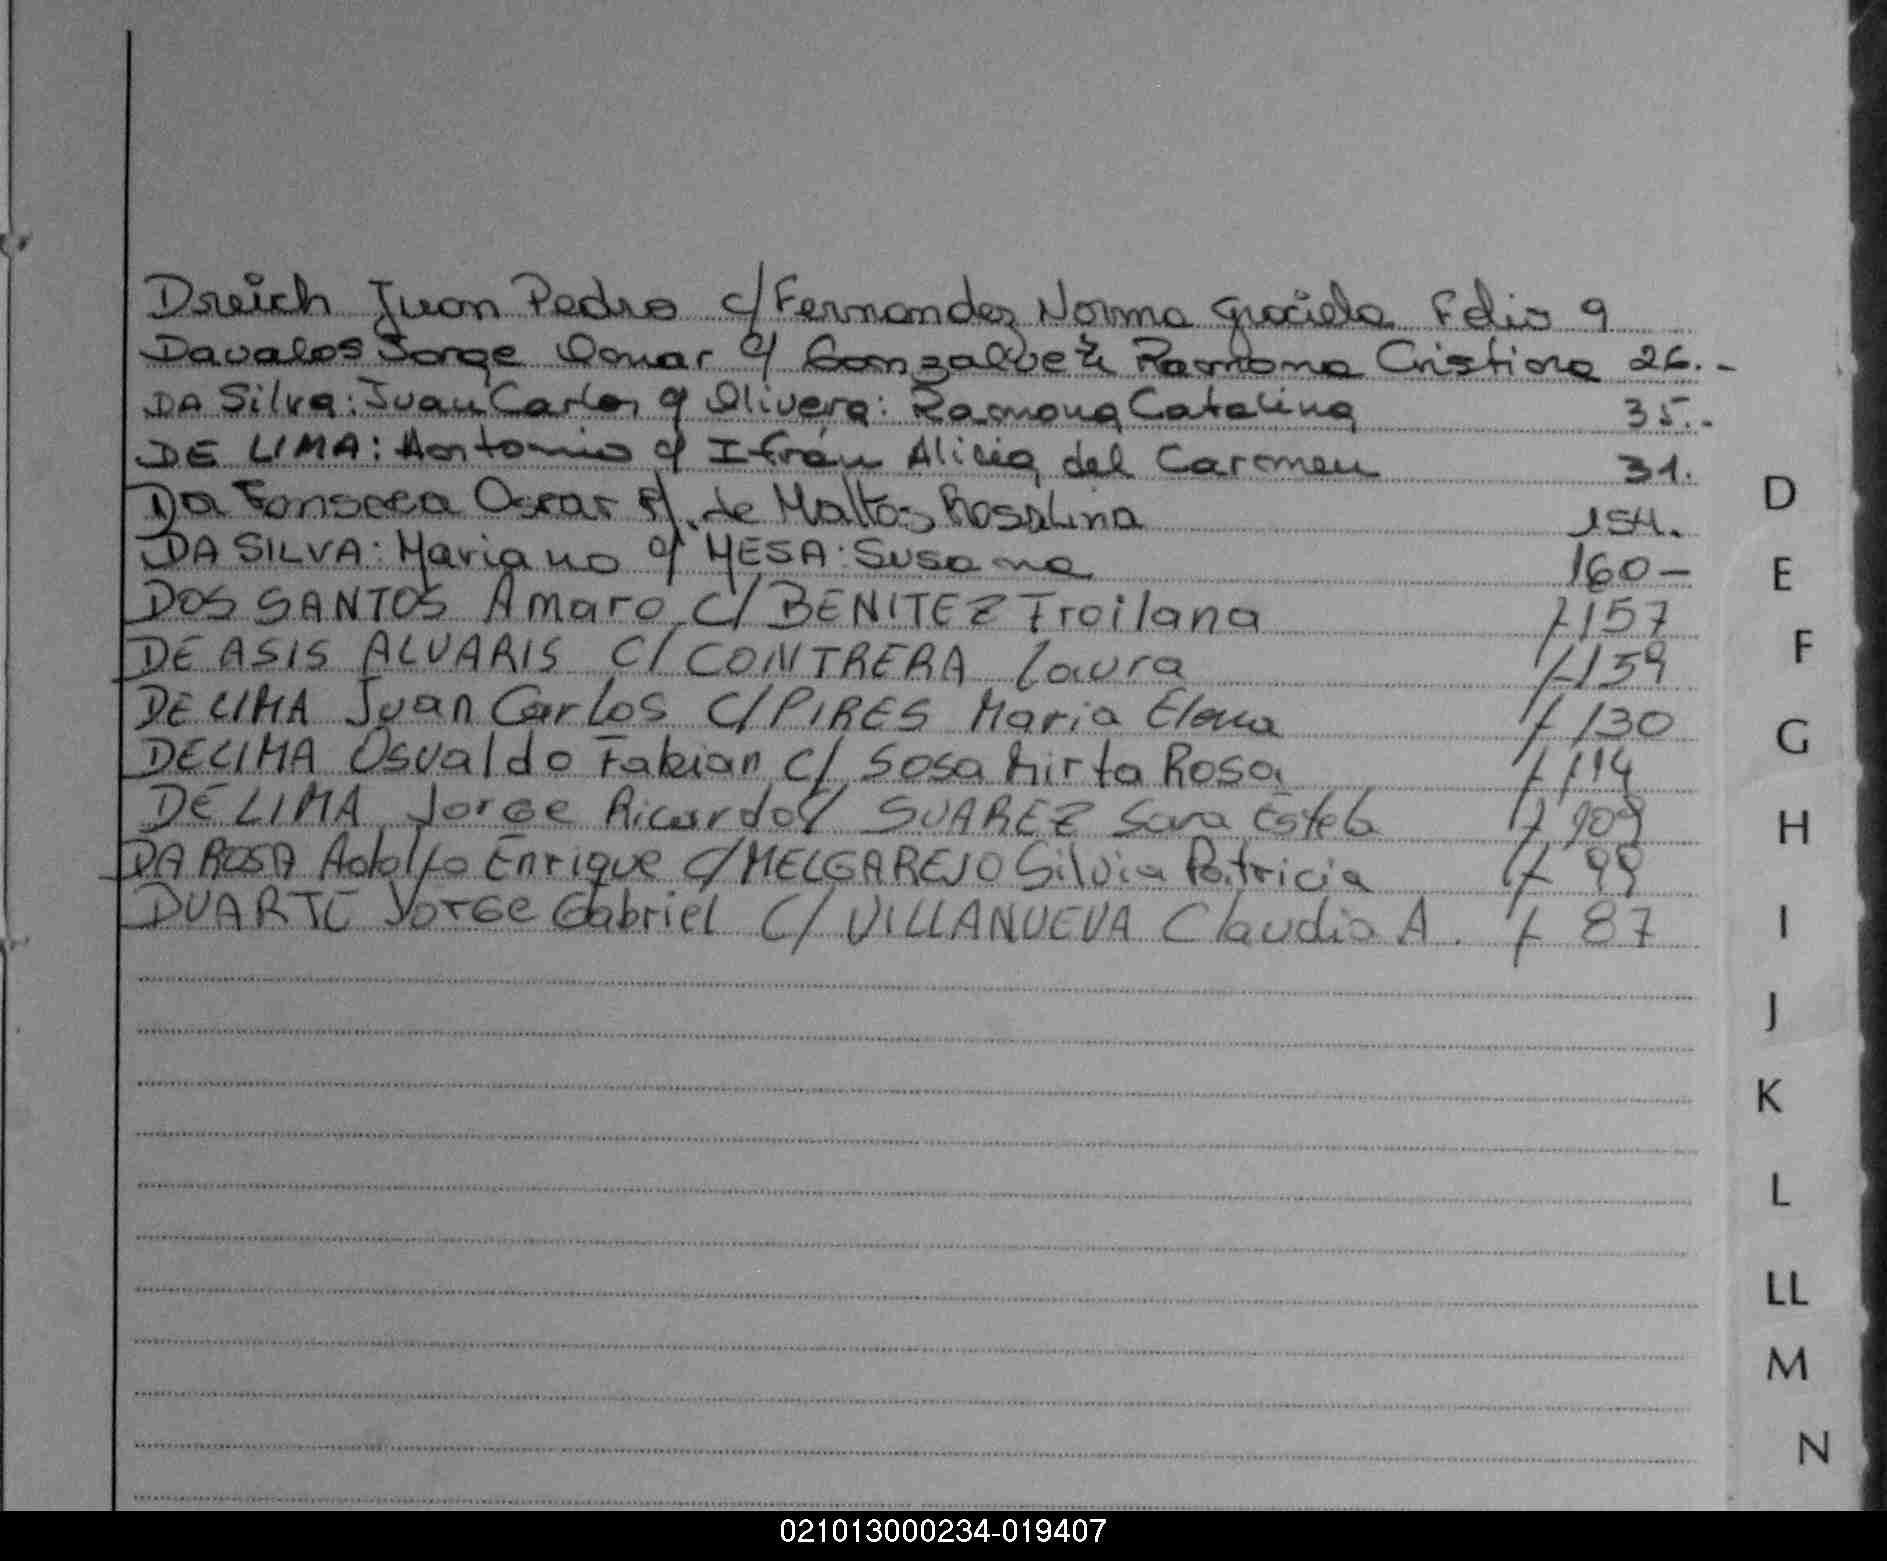 Dreich Juan Pedro c/ Fernandez Norma Graciela Folio 9
Davalos Jorge Omar c/ Gonzalvez Ramona Cristina 26.-
DA Silva: Juan Carlos c/ Olivera: Ramona Catalina 35.-
DE LIMA: Antonio c/ Ifrán Alicia del Carmen 31.
Da Fonseca Oscar c/. de Mattos Rosalina 154.
DA SILVA: Mariano c/ MESA: Susana 160-
DOS SANTOS Amaro C/ BENITEZ Troilana f 157
DE ASIS ALVARIS C/ CONTRERA Laura f 159
DE LIMA Juan Carlos C/ PIRES Maria Elena f 130
DE LIMA Osvaldo Fabian c/ Sosa Mirta Rosa f 114
DE LIMA Jorge Ricardo c/ SUAREZ Sara Estela f 109
DA ROSA Adolfo Enrique c/ MELGAREJO Silvia Patricia f 99
DUARTE Jorge Gabriel C/ VILLANUEVA Claudia A. f 87
D
E
F
G
H
I
J
K
L
LL
M
N
021013000234-019407